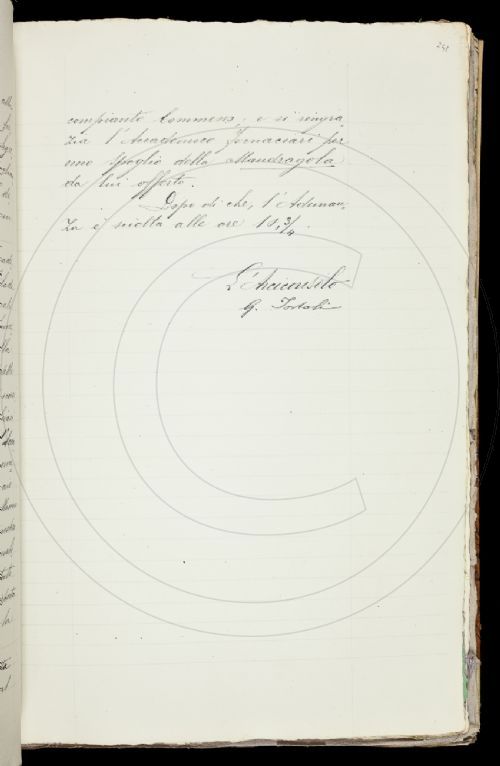 241
compianto Commens; e si ringra-
zia l'Accademico Fornaciari per
uno spoglio della Mandragola
da lui offerto.
Dopo di che, l'Adunan-
za è sciolta alle ore 11 3/4.
L'Arciconsolo
G. Tortoli